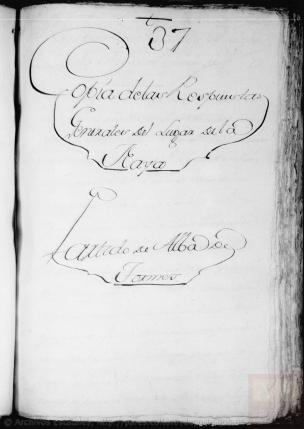 37
Copia de las Respuestas
Generales del Lugar de la
Maya
Partido de Alba de
Tormes
© Archivos Estatales